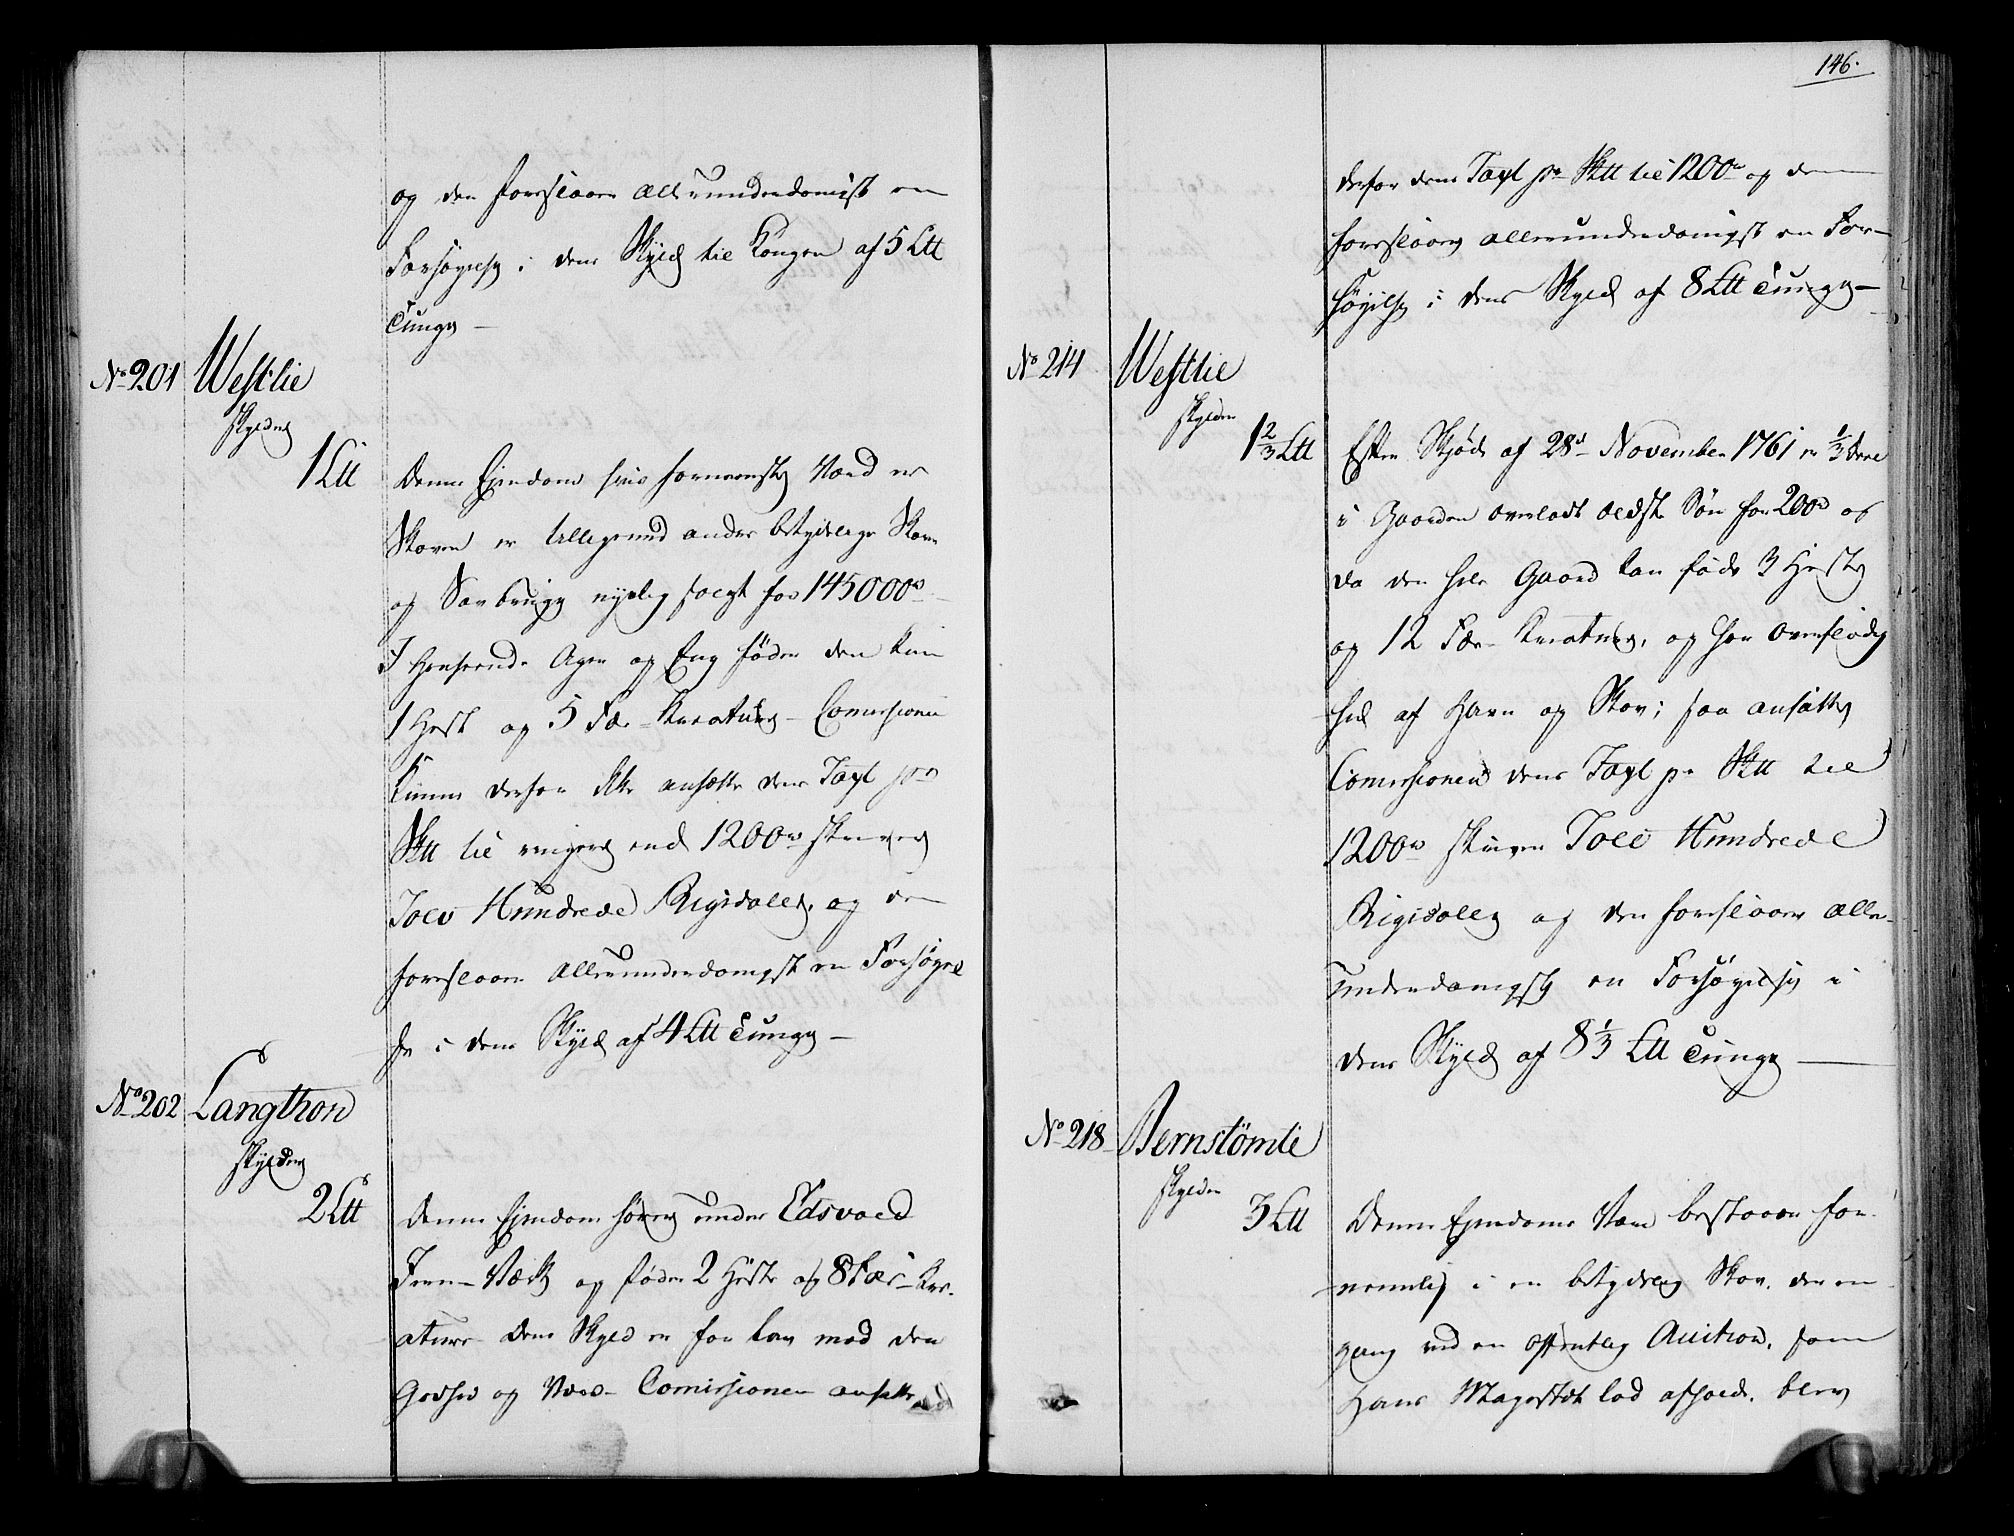 og den foreslaaer allerunderdanigst en
Forhøyelse i dens Skyld til Kongen af 5 Ltt
Tunge —
No 201 Westlie
skylder
1 Ltt
Denne Ejendoms hvis fornemste Værd er
Skoven er tilligemed andre betydelige Skove
og Saugbrug nylig solgt for 145000 rd
I Henseende Ager og Eng føder den kun
1 Hest og 5 Fæ-Kreature – Comissionen
kunne derfor ikke ansætte dens Taxt pr
Sktt til ringere end 1200 rd skriver
Tolv Hundrede Rigsdaler, og den
foreslaaer allerunderdanigst en Forhøyel
se i dens Skyld af 4 Ltt Tunge —
No 202 Langthon
skylder
2 Ltt
Denne Ejendom hører under Edsvold
Jern-Værk og føder 2 Heste og 8 Fæe-Kre-
ature dens Skyld er for lav mod den
Godhed og Værd – Comissionen ansætter
146.
derfor dens Taxt pr Sktt til 1200 rd og den
foreslaaer allerunderdanigst en For-
høyelse i dens Skyld af 8 Ltt Tunge —
No 214 Westlie
skylder
1 2/3 Ltt
Efter Skjøde af 28d November 1761 er 1/3 Deel
i Gaarden overladt ældste Søn for 200 rd og
da den hele Gaard kan føde 3 Heste
og 12 Fæ-Kreature, og har Overflødig
hed af Havn og Skov; saa ansætter
Comissionen dens Taxt pr Sktt til
1200 rd skriver Tolv Hundrede
Rigsdaler og den foreslaaer aller-
underdanigst en Forhøyelse i
dens Skyld af 8 1/3 Ltt Tunge —
No 218 Bernstømlie
skylder
3 Ltt
Denne Ejendoms Værd bestaaer for-
nemlig i en betydelig Skov, der en
gang ved en offentlig Auction, som
Hans Mayestæt lod afholde, blev